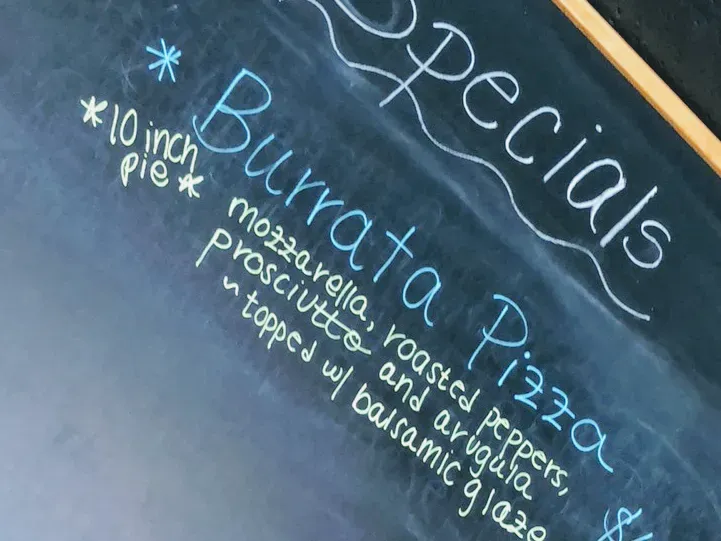 Specials
* Burrata Pizza $
*10 inch
pie*
mozzarella, roasted peppers,
prosciutto and arugula
~ topped w/ balsamic glaze